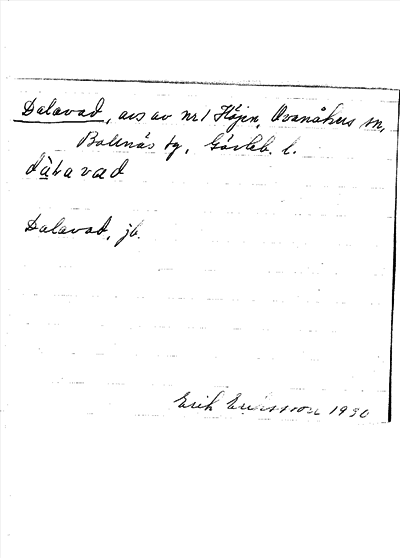 Dalavad, avs av nr 1 Höjen, Ovanåkers sn,
Bollnäs tg, Gävleb. l.
Dalavad, jb.
Erik Ericsson 1930